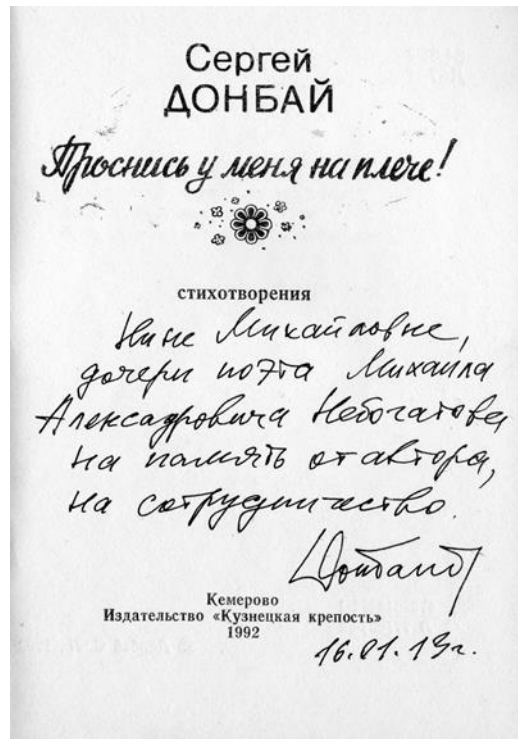 Сергей
ДОНБАЙ
Проснись у меня на плече!
стихотворения
Нине Михайловне,
дочери поэта Михаила
Алексадровича Небогатова
на память от автора,
на сотрудничество.
Донбай
Кемерово
Издательство «Кузнецкая крепость»
1992
16.01.13г.